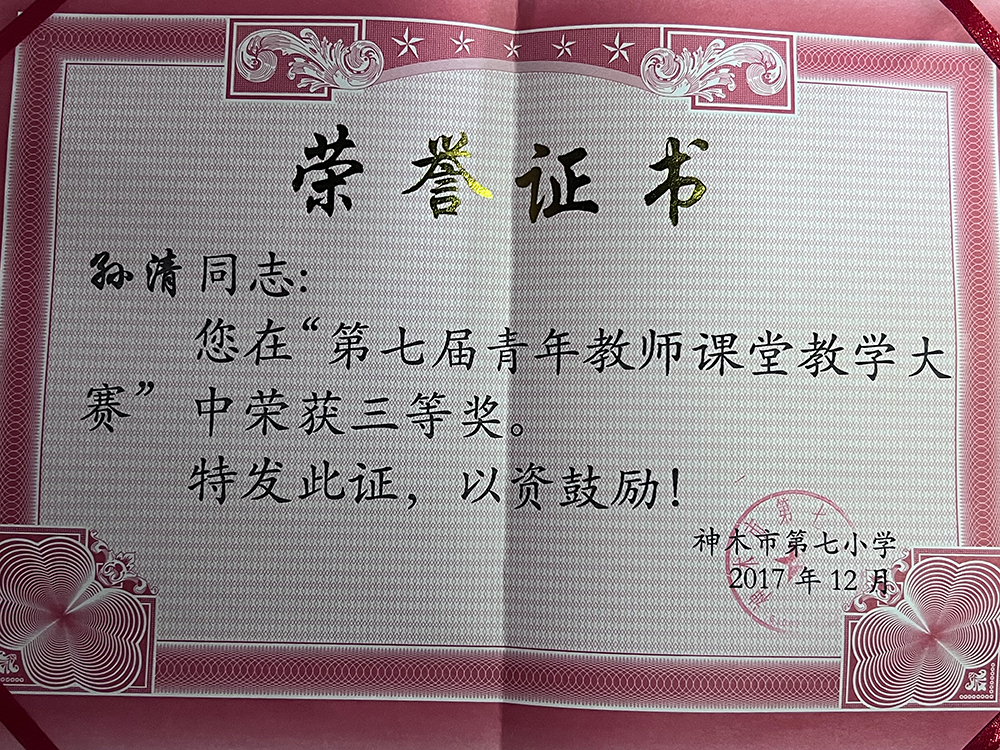 荣誉证书
孙清同志:
您在“第七届青年教师课堂教学大
赛”中荣获三等奖。
特发此证，以资鼓励！
神木市第七小学
2017年12月